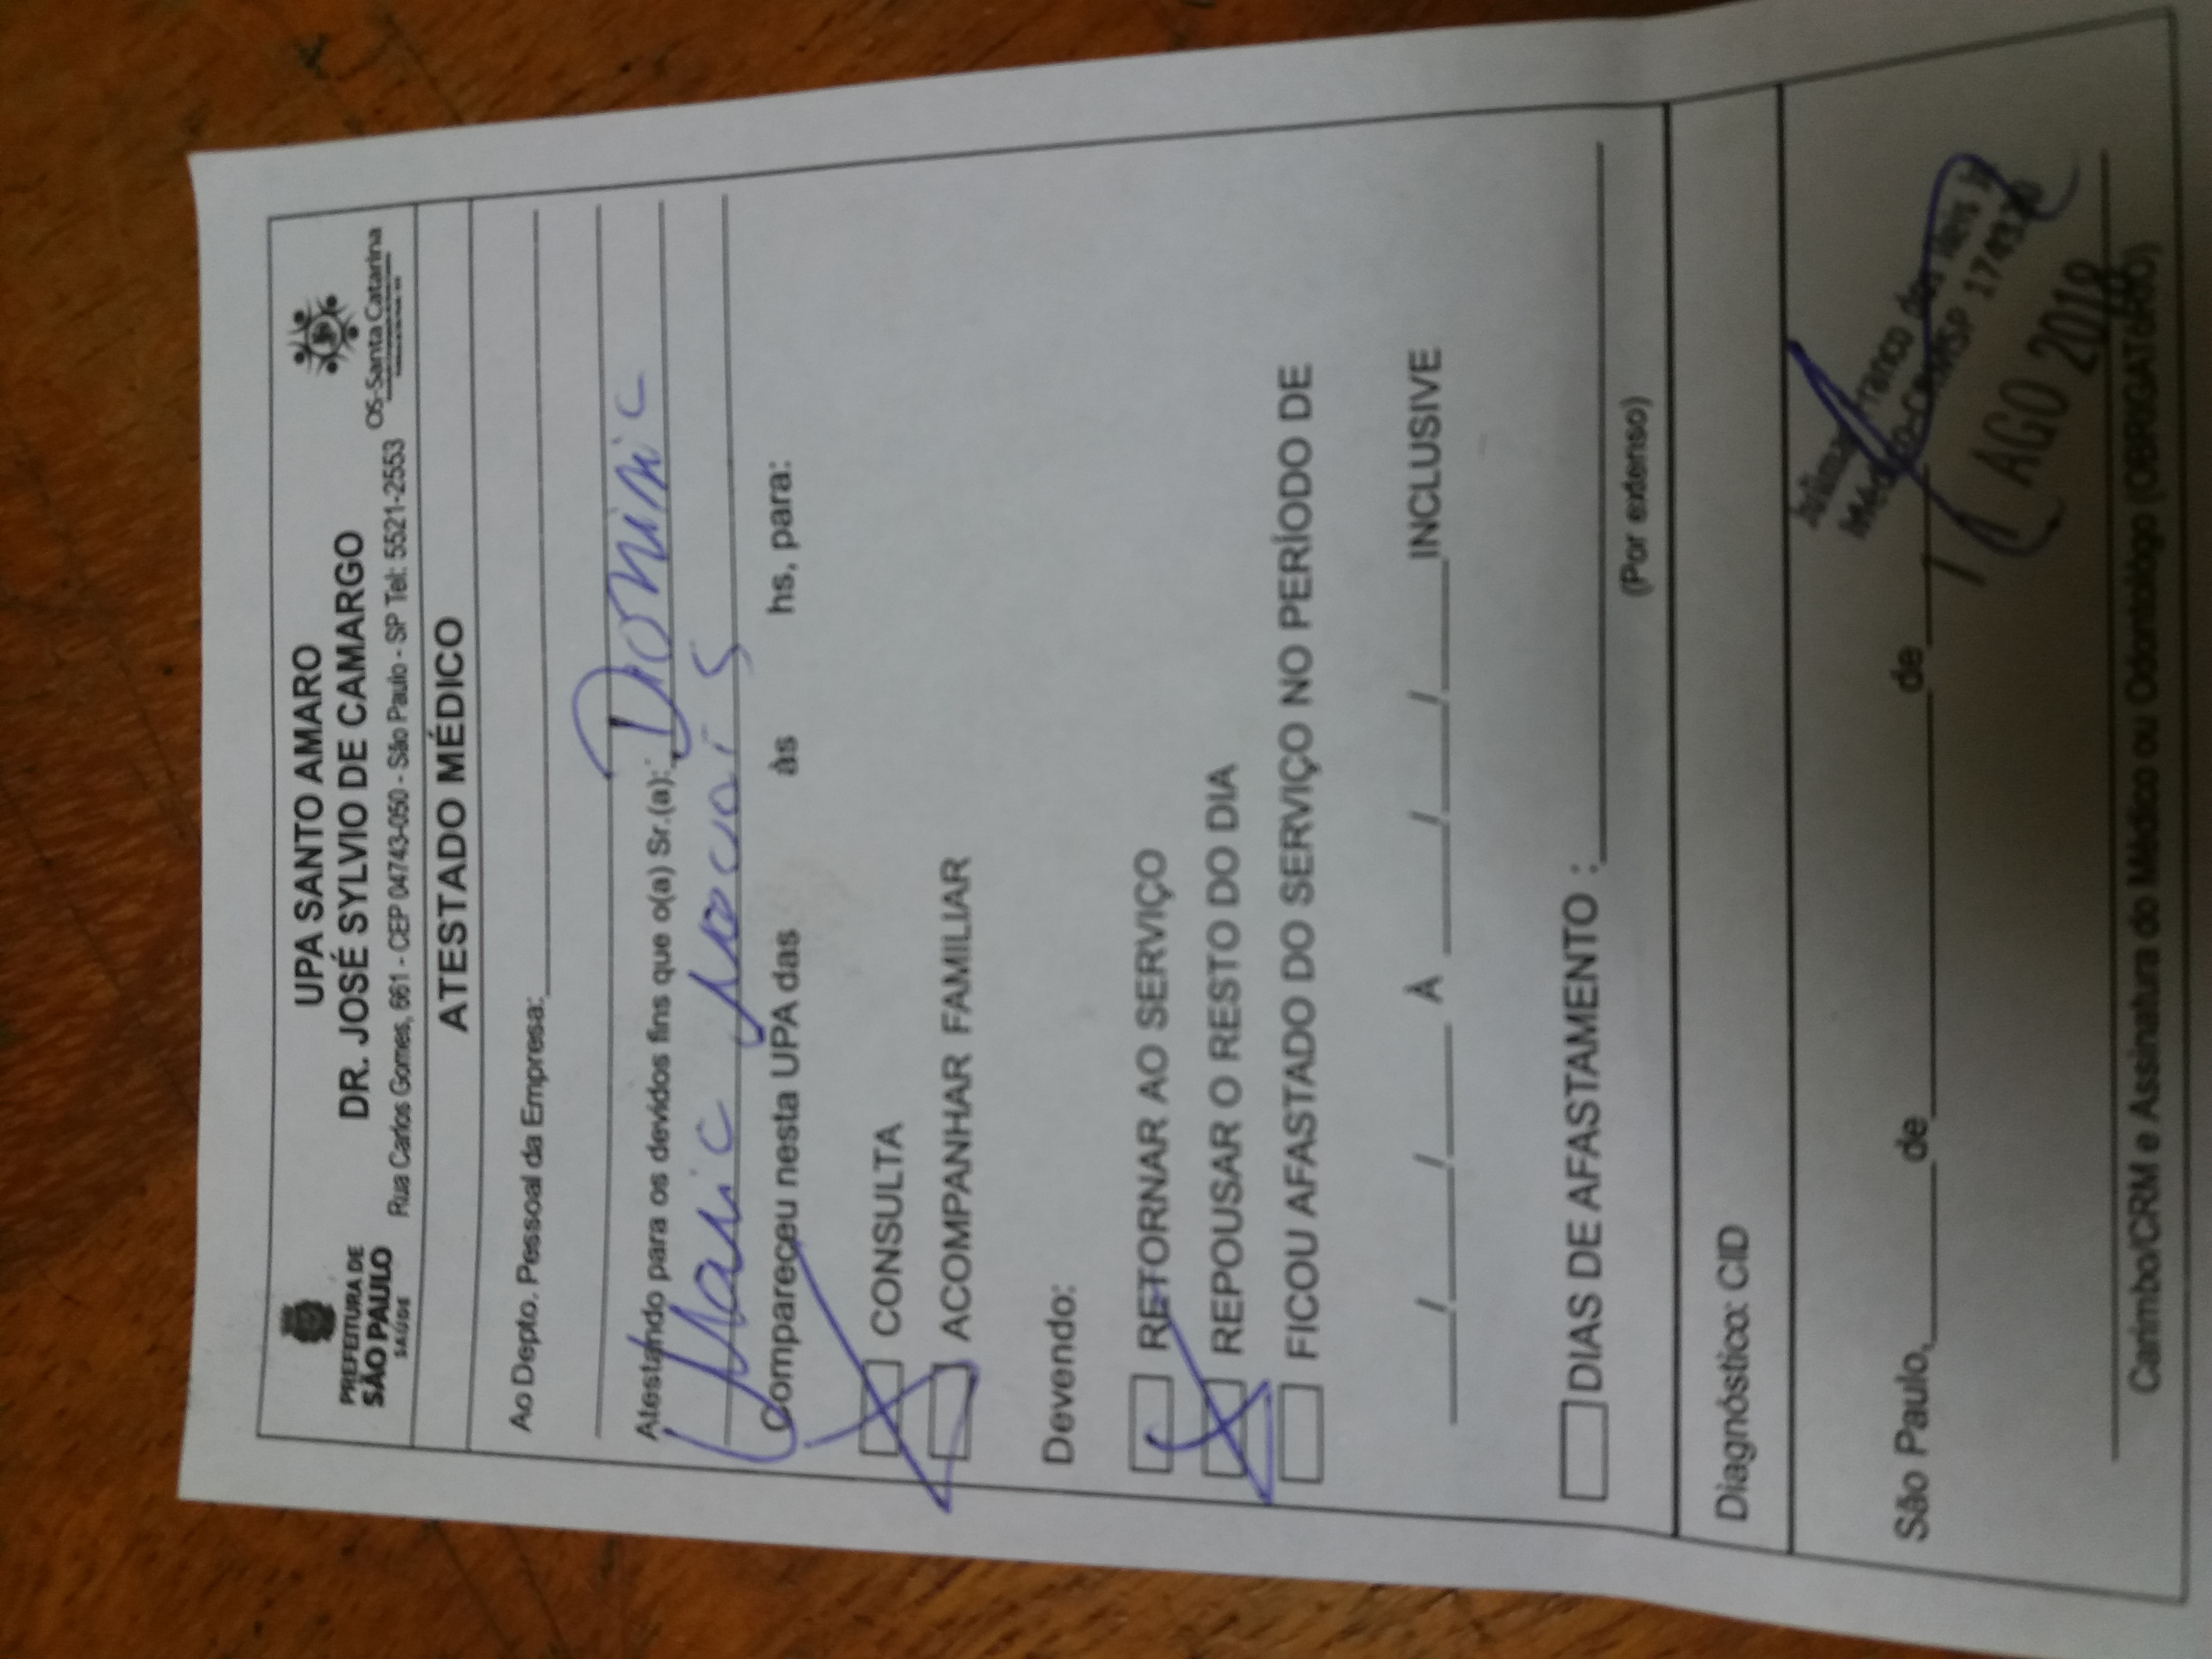 PREFEITURA DE
SÃO PAULO
SAÚDE
UPA SANTO AMARO
DR. JOSÉ SYLVIO DE CAMARGO
Rua Carlos Gomes, 661 - CEP 04743-050 - São Paulo - SP Tel: 5521-2553
OS-Santa Catarina
ATESTADO MÉDICO
Ao Depto. Pessoal da Empresa:
Atestando para os devidos fins que o(a) Sr.(a):
Compareceu nesta UPA das às hs, para:
CONSULTA
ACOMPANHAR FAMILIAR
Devendo:
RETORNAR AO SERVIÇO
REPOUSAR O RESTO DO DIA
FICOU AFASTADO DO SERVIÇO NO PERÍODO DE
____/____/____ À ____/____/____INCLUSIVE
DIAS DE AFASTAMENTO :
(Por extenso)
Diagnóstico: CID
Franco dos Reis
Médico-CRMSP
São Paulo,______de____________de______
AGO 2018
Carimbo/CRM e Assinatura do Médico ou Odontológo (OBRIGATÓRIO)